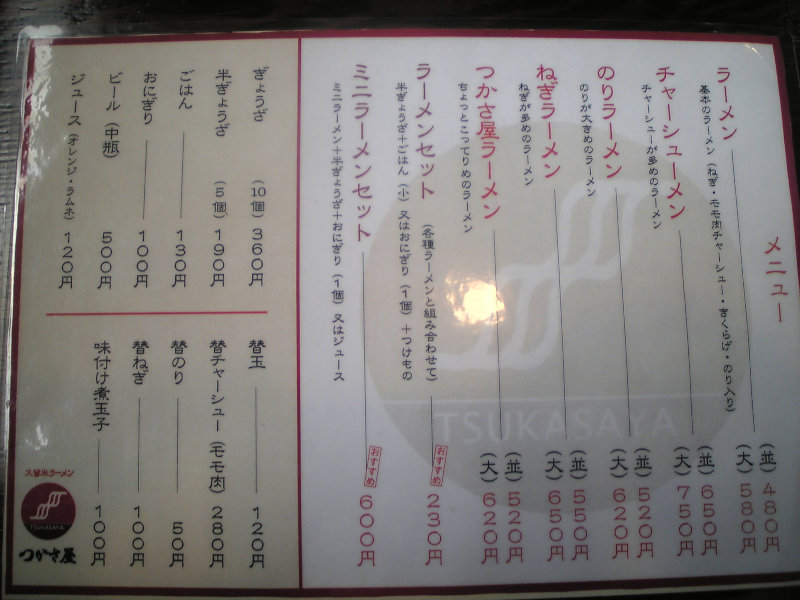 メニュー
ラーメン （並）480円
（大）580円
基本のラーメン（ねぎ・モモ肉チャーシュー・きくらげ・のり入り）
チャーシューメン （並）650円
（大）750円
チャーシューが多めのラーメン
のりラーメン （並）520円
（大）620円
のりが大きめのラーメン
ねぎラーメン （並）550円
（大）650円
ねぎが多めのラーメン
つかさ屋ラーメン （並）520円
（大）620円
ちょっとこってりめのラーメン
ラーメンセット （各種ラーメンと組み合わせて） おすすめ 230円
半ぎょうざ＋ごはん（小）又はおにぎり（1個）＋つけもの
ミニラーメンセット おすすめ 600円
ミニラーメン＋半ぎょうざ＋おにぎり（1個）又はジュース
TSUKASAYA
ぎょうざ （10個）360円
半ぎょうざ （5個）190円
ごはん 130円
おにぎり 100円
ビール（中瓶） 500円
ジュース（オレンジ・ラムネ） 120円
替玉 120円
替チャーシュー（モモ肉）280円
替のり 50円
替ねぎ 100円
味付け煮玉子 100円
久留米ラーメン
TSUKASAYA
つかさ屋